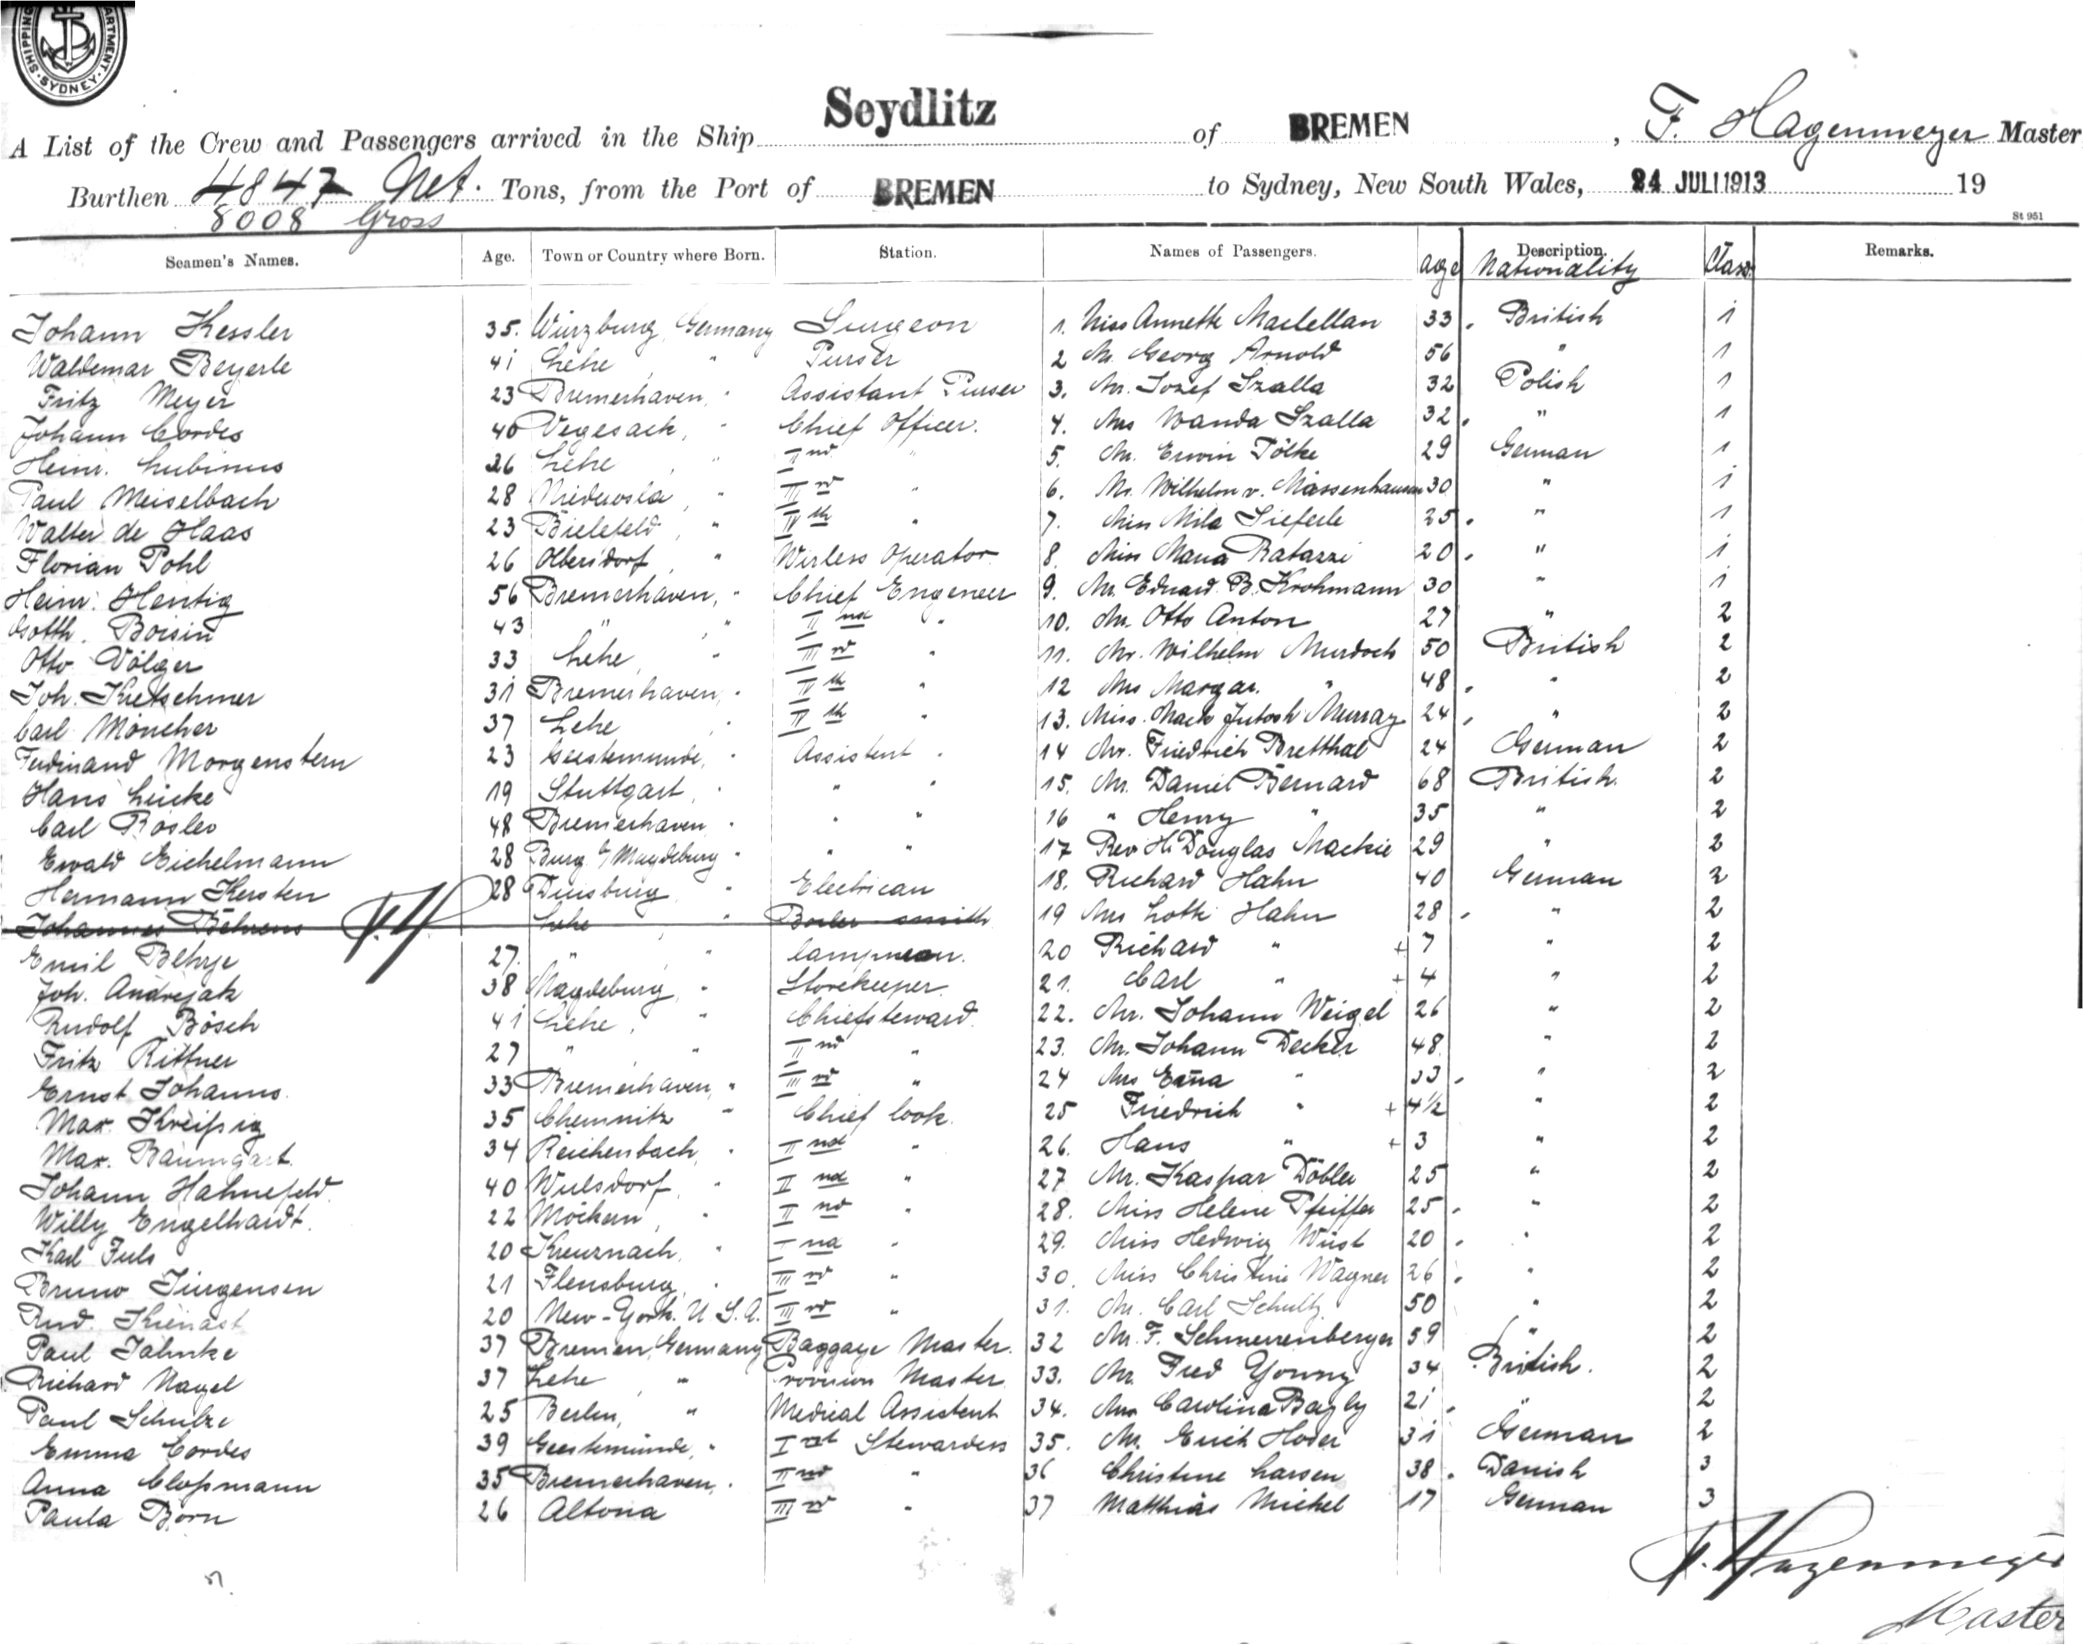 SHIPPING DEPARTMENT SYDNEY
A List of the Crew and Passengers arrived in the Ship Seydlitz of BREMEN, F. Hagenmeyer Master
Burthen 4847 Net. Tons, from the Port of BREMEN to Sydney, New South Wales, 24 JULI 1913 19
8008 Gross
St 951
Seamen's Names. Age. Town or Country where Born. Station. Names of Passengers. Age Description. Nationality Class Remarks.
Johann Kessler 35. Würzburg, Germany Surgeon 1. Miss Annette Maclellan 33. British 1
Waldemar Beyerle 41 Lehe " Purser 2 Mr. Georg Arnold 56 " 1
Fritz Meyer 23 Bremerhaven, " Assistant Purser 3. Mr. Jozef Szalla 32 Polish 1
Johann Cordes 40 Vegesack, " Chief Officer. 4. Mrs Wanda Szalla 32. " 1
Heinr. Lubinus 26 Lehe, " IInd " 5. Mr. Erwin Tölke 29 German 1
Paul Meiselbach 28 , " IIIrd " 6. Mr. Wilhelm v. Massenhausen 30 " 1
Walter de Haas 23 Bielefeld, " IVth " 7. Miss Mila Sieferle 25. " 1
Florian Pohl 26 Olbersdorf, " Wirless Operator 8. Miss Maria Ratazzi 20. " 1
Heinr. Hentig 56 Bremerhaven, " Chief Engeneer 9. Mr. Eduard B. Krohmann 30 " 1
Gotth. Boisin 43 " , " IInd " 10. Mr. Otto Anton 27 " 2
Otto Völger 33 Lehe, " IIIrd " 11. Mr. Wilhelm Murdoch 50 British 2
Joh. Kretschmer 31 Bremerhaven, " IVth " 12 Mrs Margar. " 48. " 2
Carl Möncher 37 Lehe " IVth " 13. Miss. Mack Jntosh Murray 24. " 2
Ferdinand Morgenstern 23 Geestemünde, " Assistent " 14 Mr. Friedrich Bretthal 24 German 2
Hans Lücke 19 Stuttgart, " " " 15. Mr. Daniel Bernard 68 British. 2
Carl Rösler 48 Bremerhaven " " " 16 " Henry " 35 " 2
Ewald Eichelmann 28 Burg b/Magdeburg " " " 17 Rev H. Douglas Mackie 29 " 2
Hermann Kersten 28 Duisburg " Electrican 18. Richard Hahn 40 German 2
Johannes Behrens F.H. Lehe " Boiler smith 19 Mrs Lotti Hahn 28. " 2
Emil Behrje 27. " " Lampman. 20 Richard " + 7 " 2
Joh. Andrejak 38 Magdeburg, " Storekeeper. 21. Carl " + 4 " 2
Rudolf Bösch 41 Lehe, " Chiefsteward. 22. Mr. Johann Weigel 26 " 2
Fritz Rittner 27 " " IInd " 23. Mr. Johann Decker 48. " 2
Ernst Johanns. 33 Bremerhaven, " IIIrd " 24 Mrs Erna " 33. " 2
Max. Kreißig 35 Chemnitz " Chief Cook. 25 Friedrich " + 4½ " 2
Max. Baumgart. 34 Reichenbach, " IInd " 26. Hans " + 3 " 2
Johann Hahnefeld. 40 Wulsdorf, " IInd " 27. Mr. Kaspar Döbler 25 " 2
Willy Engelhardt. 22 Möckern, " IInd " 28. Miss Helene Pfeiffer 25. " 2
Karl Juls 20 Kreuznach, " IInd " 29. Miss Hedwig Wüst 20. " 2
Bruno Jürgensen 21 Flensburg, " IIIrd " 30. Miss Christine Wagner 26. " 2
Rud. Kienast 20 New-York. U.S.A. IIIrd " 31. Mr. Carl Schultz 50 " 2
Paul Jahnke 37 Bremen, Germany Baggage Master. 32 Mr. F. Schmerrenberger 59 " 2
Richard Nagel 37 Lehe " Provision Master 33. Mr. Fred Young 34 British. 2
Paul Schulze 25 Berlin, " Medical Assistent 34. Mrs Carolina Bagly 21. " 2
Emma Cordes 39 Geestemünde, " Ist Stewardess 35. Mr. Erich Hoder 31 German 2
Anna Cloßmann 35 Bremerhaven, " IInd " 36 Christine Larsen 38. Danish 3
Paula Born 26 Altona IIIrd " 37 Matthias Michel 17 German 3
F. Hagenmeyer
Master